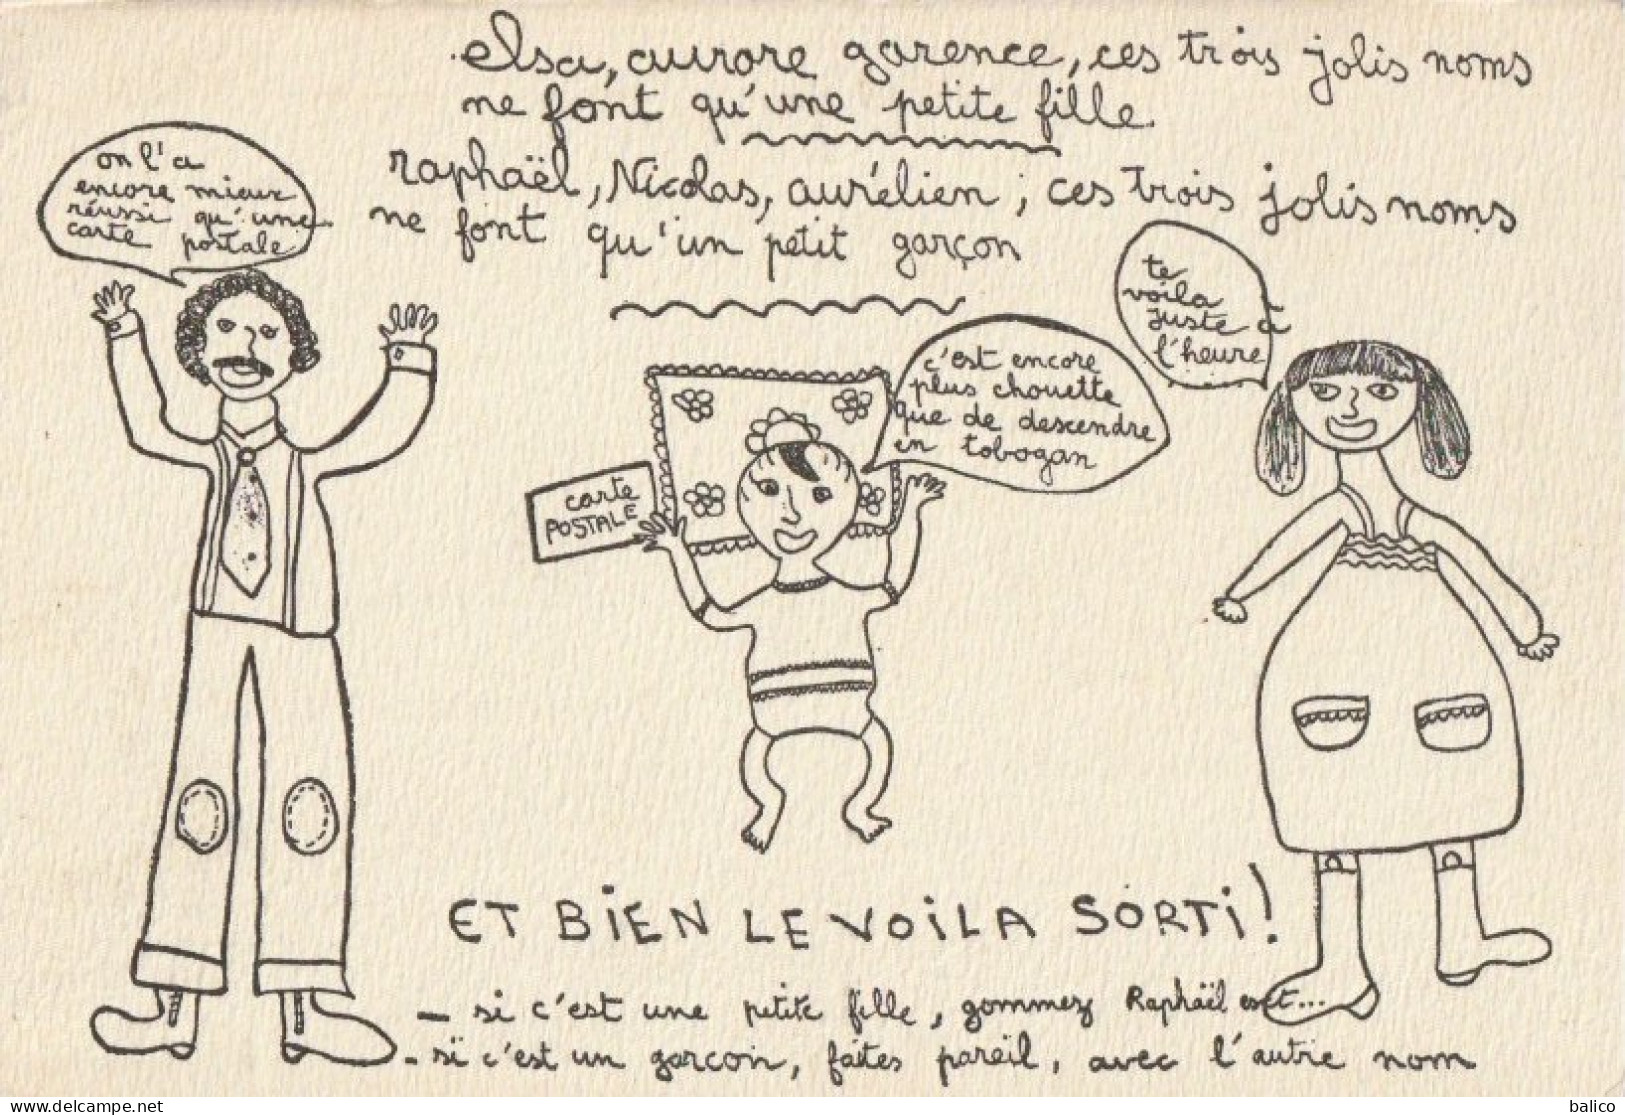 elsa, aurore garence, ces trois jolis noms
ne font qu'une petite fille
raphaël, Nicolas, aurélien, ces trois jolis noms
ne font qu'un petit garçon
on l'a
encore mieux
réussi qu'une
carte postale
te
voila
juste à
l'heure
c'est encore
plus chouette
que de descendre
en tobogan
carte
POSTALE
ET BIEN LE VOILA SORTI!
- si c'est une petite fille, gommez Raphaël ect...
- si c'est un garçon, faites pareil, avec l'autre nom
delcampe.net
balico